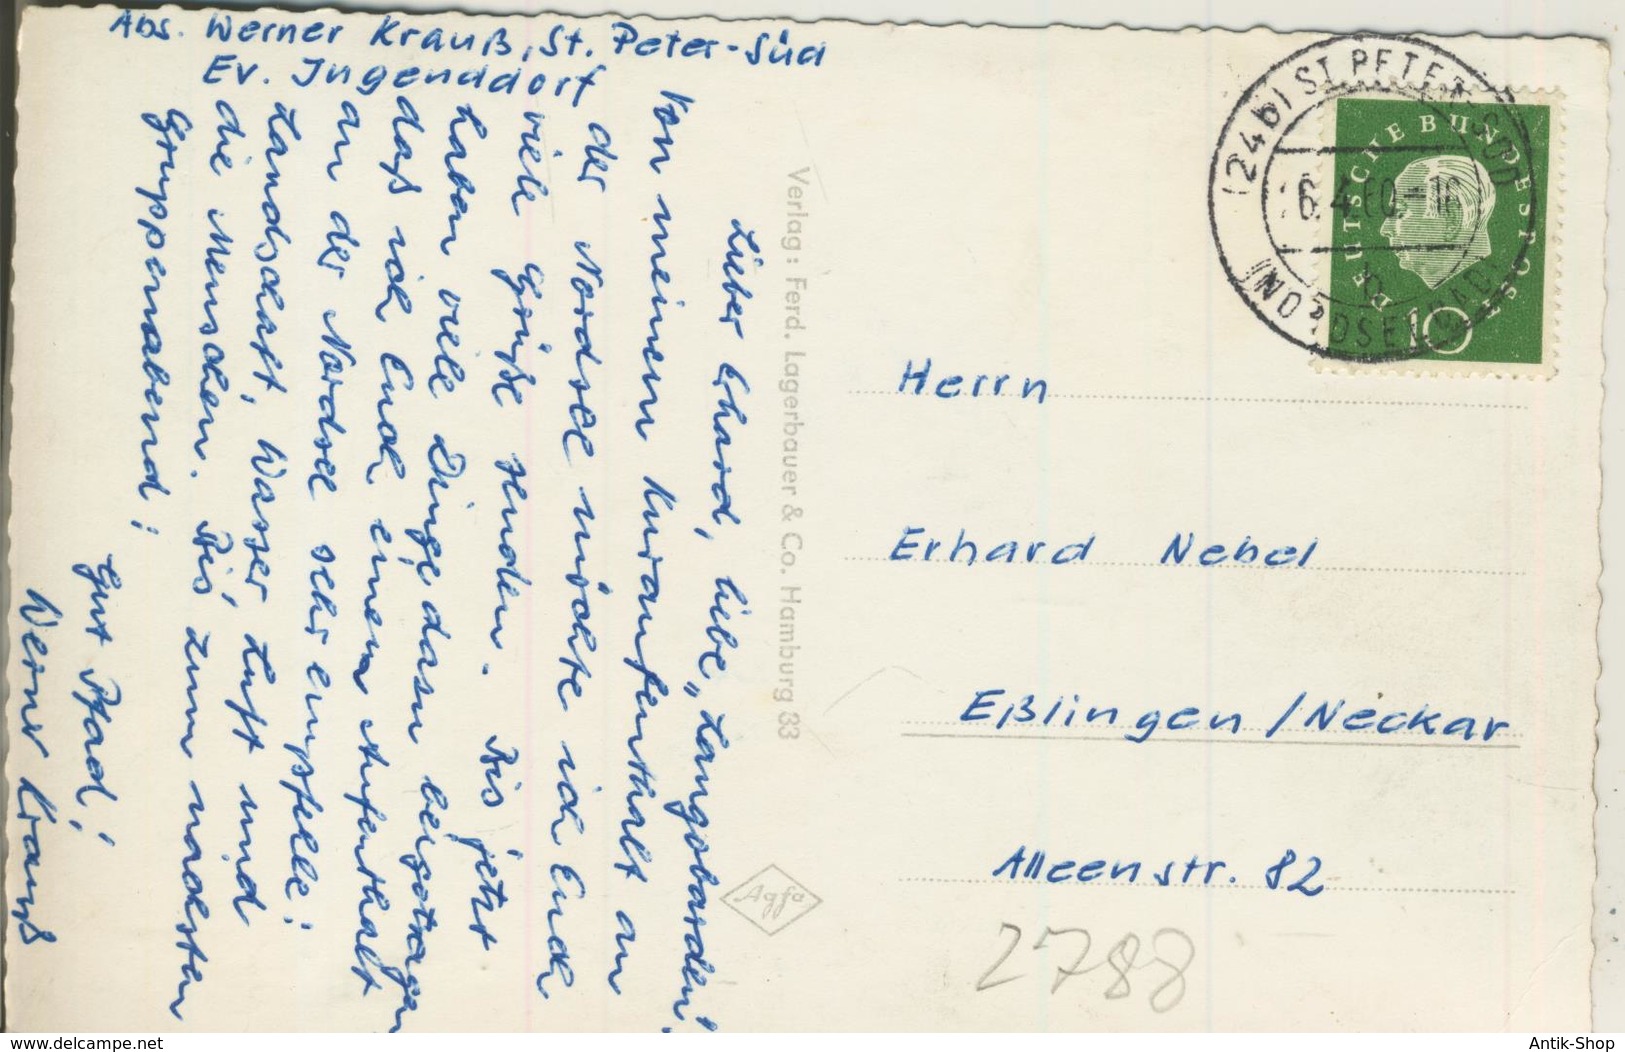 Abs. Werner Krauß, St. Peter-Süd
Ev. Jugenddorf
Lieber Erhard, liebe „Langobarden"!
Von meinem Kuraufenthalt an
der Nordsee möchte ich Euch
viele Grüße senden. Bis jetzt
haben viele Dinge dazu beigetragen
daß ich Euch einen Aufenthalt
an der Nordsee sehr empfehle:
Landschaft, Wasser, Luft und
die Menschen. Bis zum nächsten
Gruppenabend!
Gut Pfad!
Werner Krauß
Verlag: Ferd. Lagerbauer & Co. Hamburg 33
Agfa
(24b) ST. PETER-SÜD
6.4.60.-16
(NORDSEEBAD)
DEUTSCHE BUNDESPOST
10
Herrn
Erhard Nebel
Eßlingen/Neckar
Alleenstr. 82
2788
www.delcampe.net
Antik-Shop